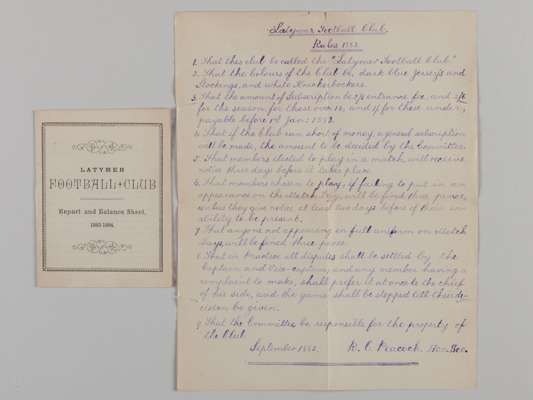 LATYMER
FOOTBALL CLUB
Report and Balance Sheet,
1883-1884.
Latymer Football Club.
Rules 1882.
1. That this club be called the "Latymer Football Club."
2. That the colours of the Club be, dark blue Jerseys and
Stockings, and white Knickerbockers.
3. That the amount of Subscription be entrance fee, and
for the season for those over 12, and 1/- for those under
payable before 1st Jan: 1883.
4. That if the Club run short of money, a general subscription
will be made, the amount to be decided by the Committee.
5. That members elected to play in a match will receive
notice three days before it takes place.
6. That members chosen to play, if failing to put in an
appearance on the Match Day, will be fined three pence,
unless they give notice at least two days before of their in-
ability to be present.
7. That anyone not appearing in full uniform on Match
Days, will be fined three pence.
8. That in Practice all disputes shall be settled by the
Captain and Vice-captain, and any member having a
complaint to make, shall prefer it at once to the chief
of his side, and the game shall be stopped till the de-
cision be given.
9. That the Committee be responsible for the property of
the Club.
September 1882. R. C. Peacock. Hon. Sec.